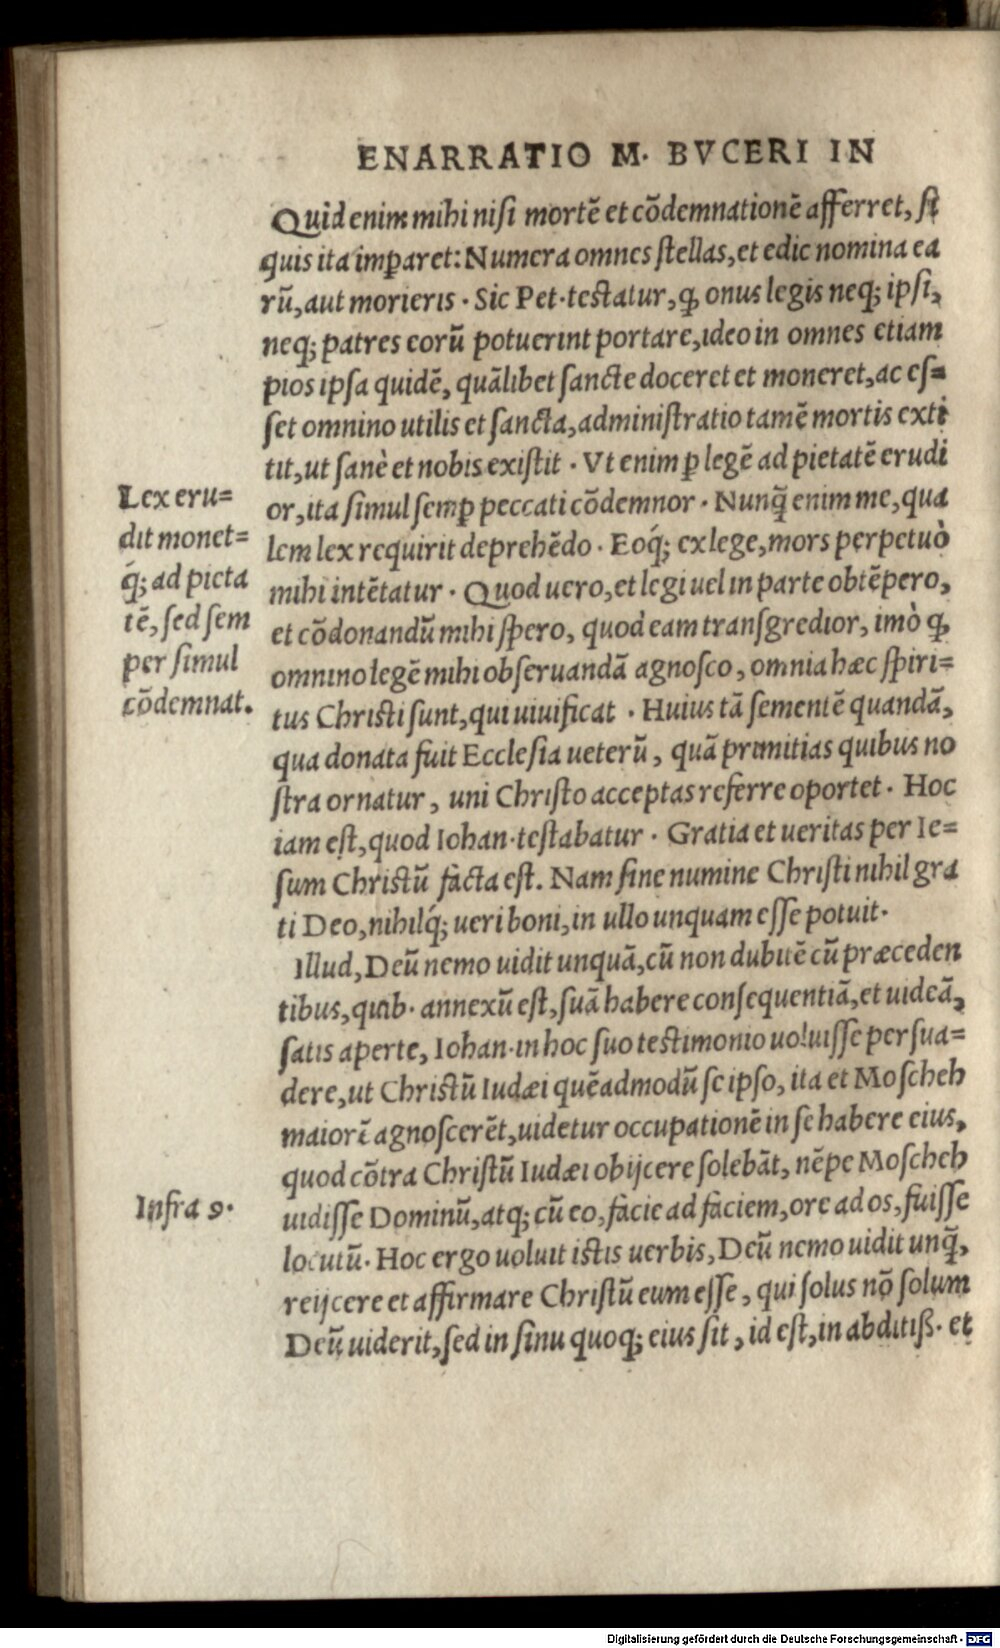 ENARRATIO M. BVCERI IN
Quid enim mihi nisi mortē et cōdemnationē afferret, si
quis ita imꝑaret: Numera omnes stellas, et edic nomina ea
rū, aut morieris. Sic Pet. testatur, ꝙ onus legis neq; ipsi,
neq; patres eorū potuerint portare, ideo in omnes etiam
pios ipsa quidē, quālibet sancte doceret et moneret, ac es=
set omnino utilis et sancta, administratio tamē mortis exti
tit, ut sanè et nobis existit. Vt enim ꝑ legē ad pietatē erudi
or, ita simul semꝑ peccati cōdemnor. Nunq̄ enim me, qua
lem lex requirit deprehēdo. Eoq́; ex lege, mors perpetuò
mihi intētatur. Quod uero, et legi uel in parte obtēpero,
et cōdonandū mihi spero, quod eam transgredior, imò ꝙ
omnino legē mihi obseruandā agnosco, omnia hæc spiri=
tus Christi sunt, qui uiuificat. Huius tā sementē quandā,
qua donata fuit Ecclesia ueterū, quā primitias quibus no
stra ornatur, uni Christo acceptas referre oportet. Hoc
iam est, quod Iohan. testabatur. Gratia et ueritas per Ie=
sum Christū facta est. Nam sine numine Christi nihil gra
ti Deo, nihilq́; ueri boni, in ullo unquam esse potuit.
Illud, Deū nemo uidit unquā, cū non dubitē cū præceden
tibus, quib. annexū est, suā habere consequentiā, et uideā,
satis aperte, Iohan. in hoc suo testimonio uoluisse persua=
dere, ut Christū Iudæi quēadmodū se ipso, ita et Moscheh
maiorē agnoscerēt, uidetur occupationē in se habere eius,
quod cōtra Christū Iudæi obijcere solebāt, nēpe Moscheh
uidisse Dominū, atq; cū eo, facie ad faciem, ore ad os, fuisse
locutū. Hoc ergo uoluit istis uerbis, Deū nemo uidit unq̄,
reijcere et affirmare Christū eum esse, qui solus nō solum
Deū uiderit, sed in sinu quoq; eius sit, id est, in abditiß. et
Lex eru=
dit monet=
q́; ad pieta
tē, sed sem
per simul
cōdemnat.
Infra 9.
Digitalisierung gefördert durch die Deutsche Forschungsgemeinschaft - DFG